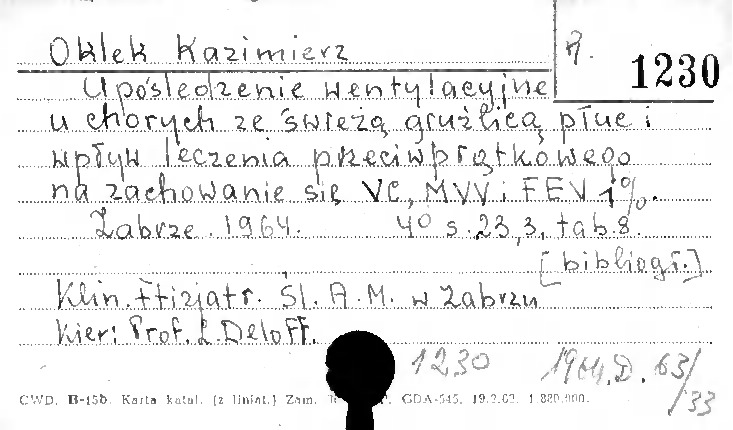 Oklek Kazimierz
A. 1230
Upośledzenie wentylacyjne
u chorych ze świeżą gruźlicą płuc i
wpływ leczenia przeciwprątkowego
na zachowanie się VC, MVV i FEV 1%.
Zabrze. 1964. 4° s. 23, 3, tab. 8.
[bibliogr.]
Klin. Ftizjatr. Śl. A. M. w Zabrzu
Kier: Prof. L. Deloff.
1230 1964. D. 63/33
CWD. B-15b. Karta katal. (z liniat.) Zam. GDA-545. 19.2.62. 1.880.000.